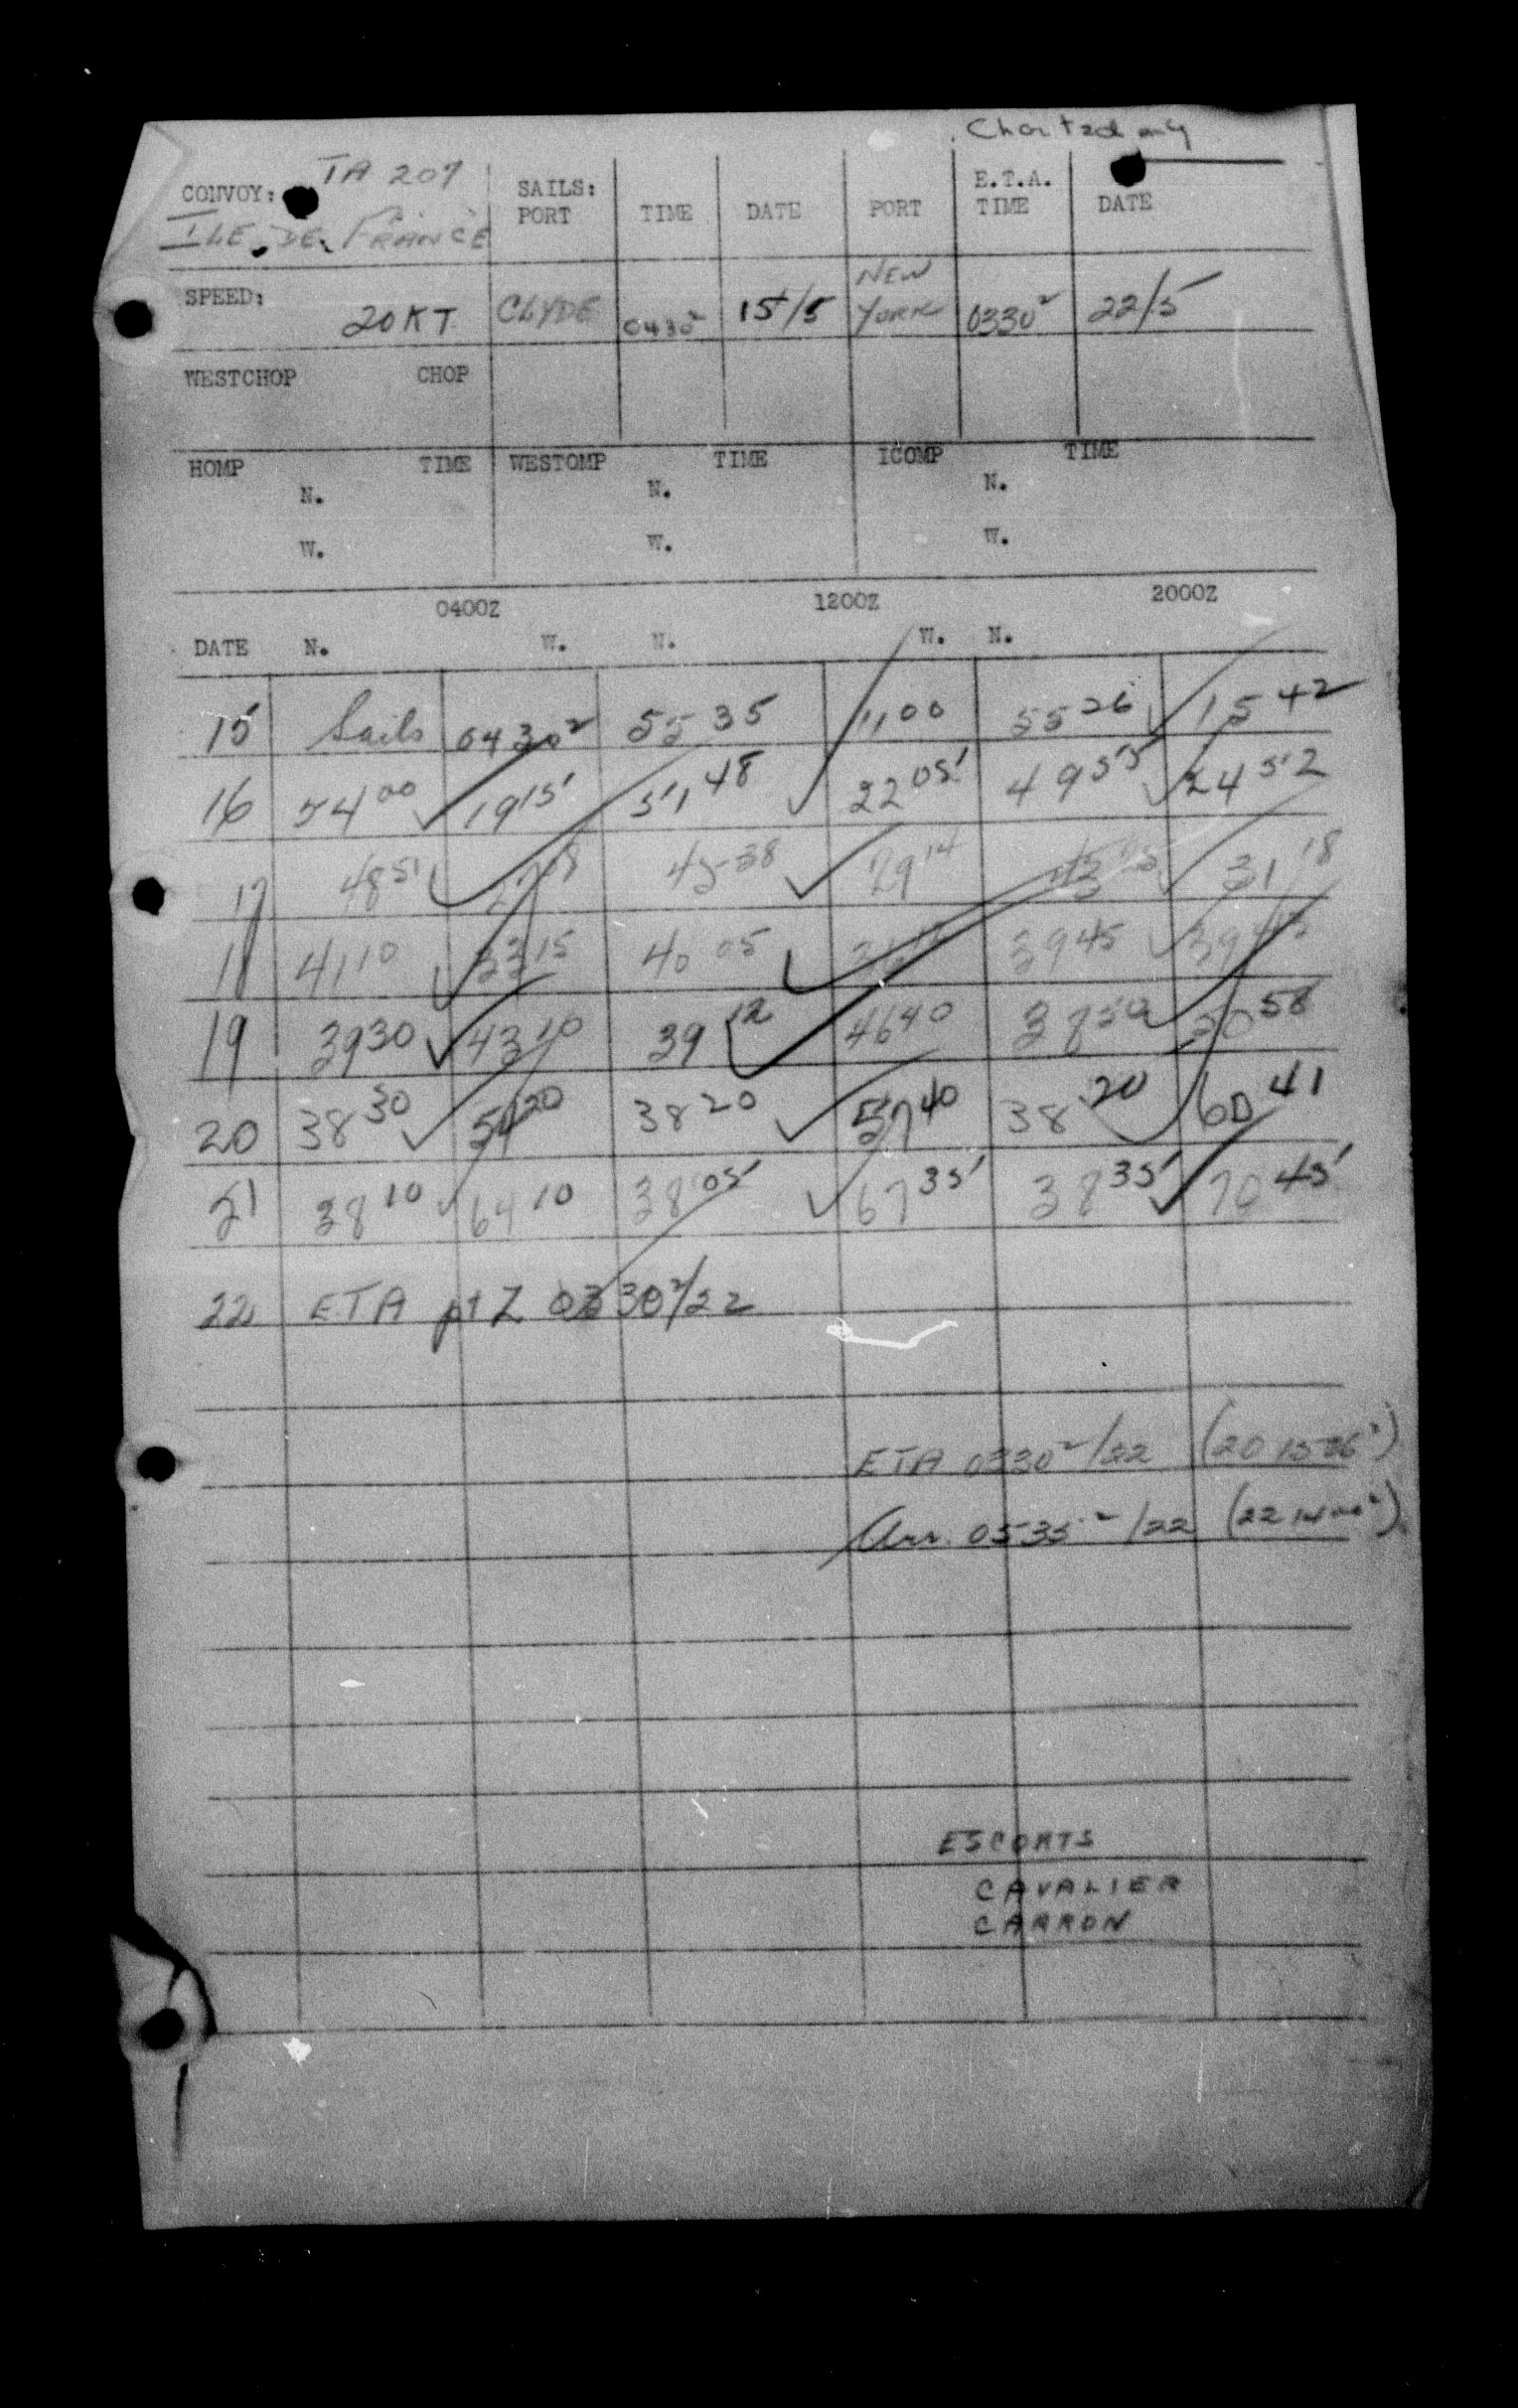 Charted only
CONVOY: TA 207 SAILS: PORT TIME DATE PORT E.T.A. TIME DATE
ILE DE FRANCE
SPEED: 20 KT. CLYDE 0430Z 15/5 NEW YORK 0330Z 22/5
WESTCHOP CHOP
HOMP TIME WESTOMP TIME ICOMP TIME
N. N. N.
W. W. W.
0400Z 1200Z 2000Z
DATE N. W. N. W. N.
15 Sails 0430Z 55 35 11 00 55 26 15 42
16 54 00 19 15 51 48 22 05 49 55 24 52
17 48 51 45-38 29 14 31 18
18 41 10 33 15 40 05 39 45
19 39 30 43 10 39 12 46 40 50 58
20 38 30 54 20 38 20 57 40 38 20 60 41
21 38 10 64 10 38 05 67 35 38 35 70 45
22 ETA pt Z 0330Z/22
ETA 0330Z/22
Arr. 0535Z/22
ESCORTS
CAVALIER
CARRON